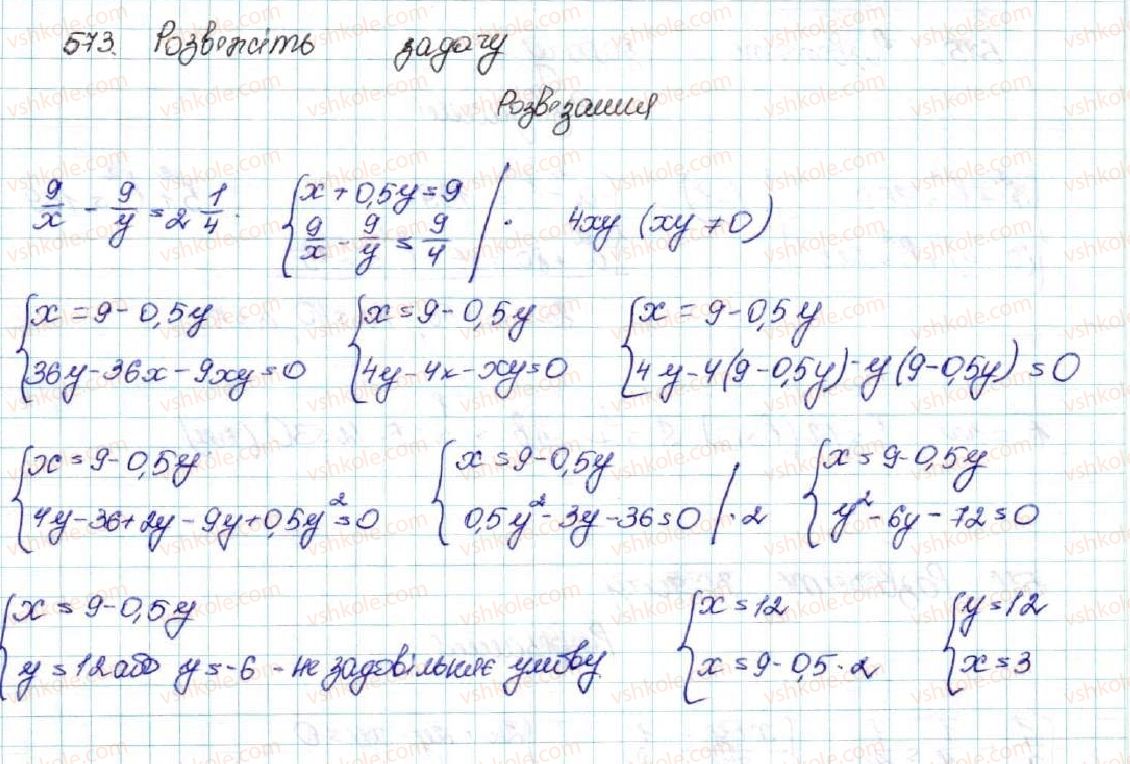 573. Розв'яжіть задачу
Розв'язання
9/x - 9/y = 2 1/4. { x + 0,5y = 9 ; 9/x - 9/y = 9/4 | · 4xy (xy ≠ 0)
{ x = 9 - 0,5y ; 36y - 36x - 9xy = 0 { x = 9 - 0,5y ; 4y - 4x - xy = 0 { x = 9 - 0,5y ; 4y - 4(9 - 0,5y) - y(9 - 0,5y) = 0
{ x = 9 - 0,5y ; 4y - 36 + 2y - 9y + 0,5y² = 0 { x = 9 - 0,5y ; 0,5y² - 3y - 36 = 0 | · 2 { x = 9 - 0,5y ; y² - 6y - 72 = 0
{ x = 9 - 0,5y ; y = 12 або y = -6 - не задовільняє умову { x = 12 ; x = 9 - 0,5 · 2 { y = 12 ; x = 3
vshkole.com